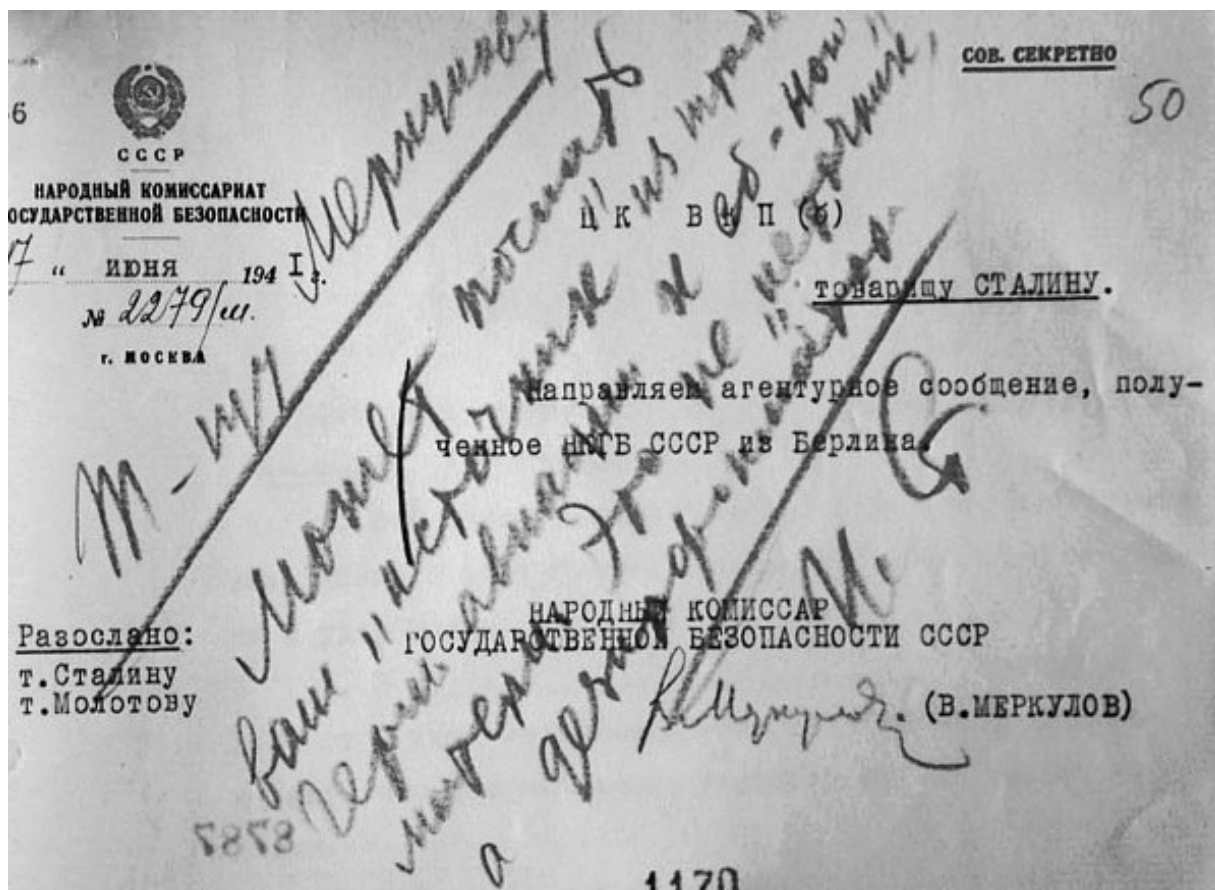 СОВ. СЕКРЕТНО
50
6
СССР
НАРОДНЫЙ КОМИССАРИАТ
ОСУДАРСТВЕННОЙ БЕЗОПАСНОСТИ
7 " ИЮНЯ 194 I г.
№ 2279/м.
г. МОСКВА
Ц К В К П (б)
товарищу СТАЛИНУ.
Направляем агентурное сообщение, полу-
ченное НКГБ СССР из Берлина.
НАРОДНЫЙ КОМИССАР
ГОСУДАРСТВЕННОЙ БЕЗОПАСНОСТИ СССР
(В.МЕРКУЛОВ)
Разослано:
т.Сталину
т.Молотову
Т-щу Меркулову
Может послать
ваш "источник" из штаба
герм. авиации к еб-ной
матери. Это не "источник",
а дезинформатор.
И. Ст.
8787
1170